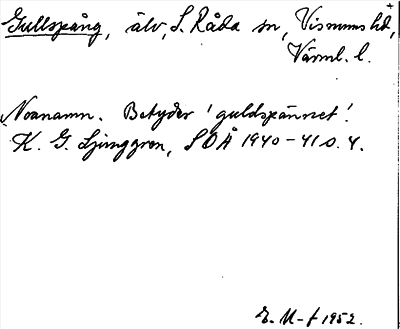 Gullspång, älv, S. Råda sn, Visnums hd,
Värml. l.
Noanamn. Betyder 'guldspännet'.
K. G. Ljunggren, SOÅ 1940-41 s. 4.
E. U-f 1952.